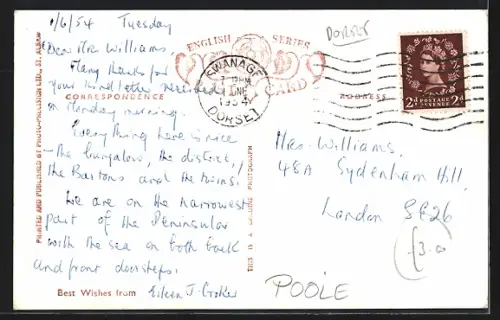 1/6/54 Tuesday
Dear Mrs. Williams.
Many thanks for
your kind letter received
on Monday morning.
Everything here is nice
- the bungalow, the district,
the Bartons and the twins.
We are on the narrowest
part of the Peninsular
with the sea on both back
and front doorsteps.
Best Wishes from Eileen J. Croker
CORRESPONDENCE
PRINTED AND PUBLISHED BY PHOTO-PRECISION LTD., ST. ALBANS
THIS IS A GENUINE PHOTOGRAPH
ENGLISH SERIES
CARD
SWANAGE
JUNE
1954
DORSET
ADDRESS
DORSET
2d POSTAGE REVENUE 2d
Mrs. Williams.
48A Sydenham Hill,
London SE26
£3.00
POOLE